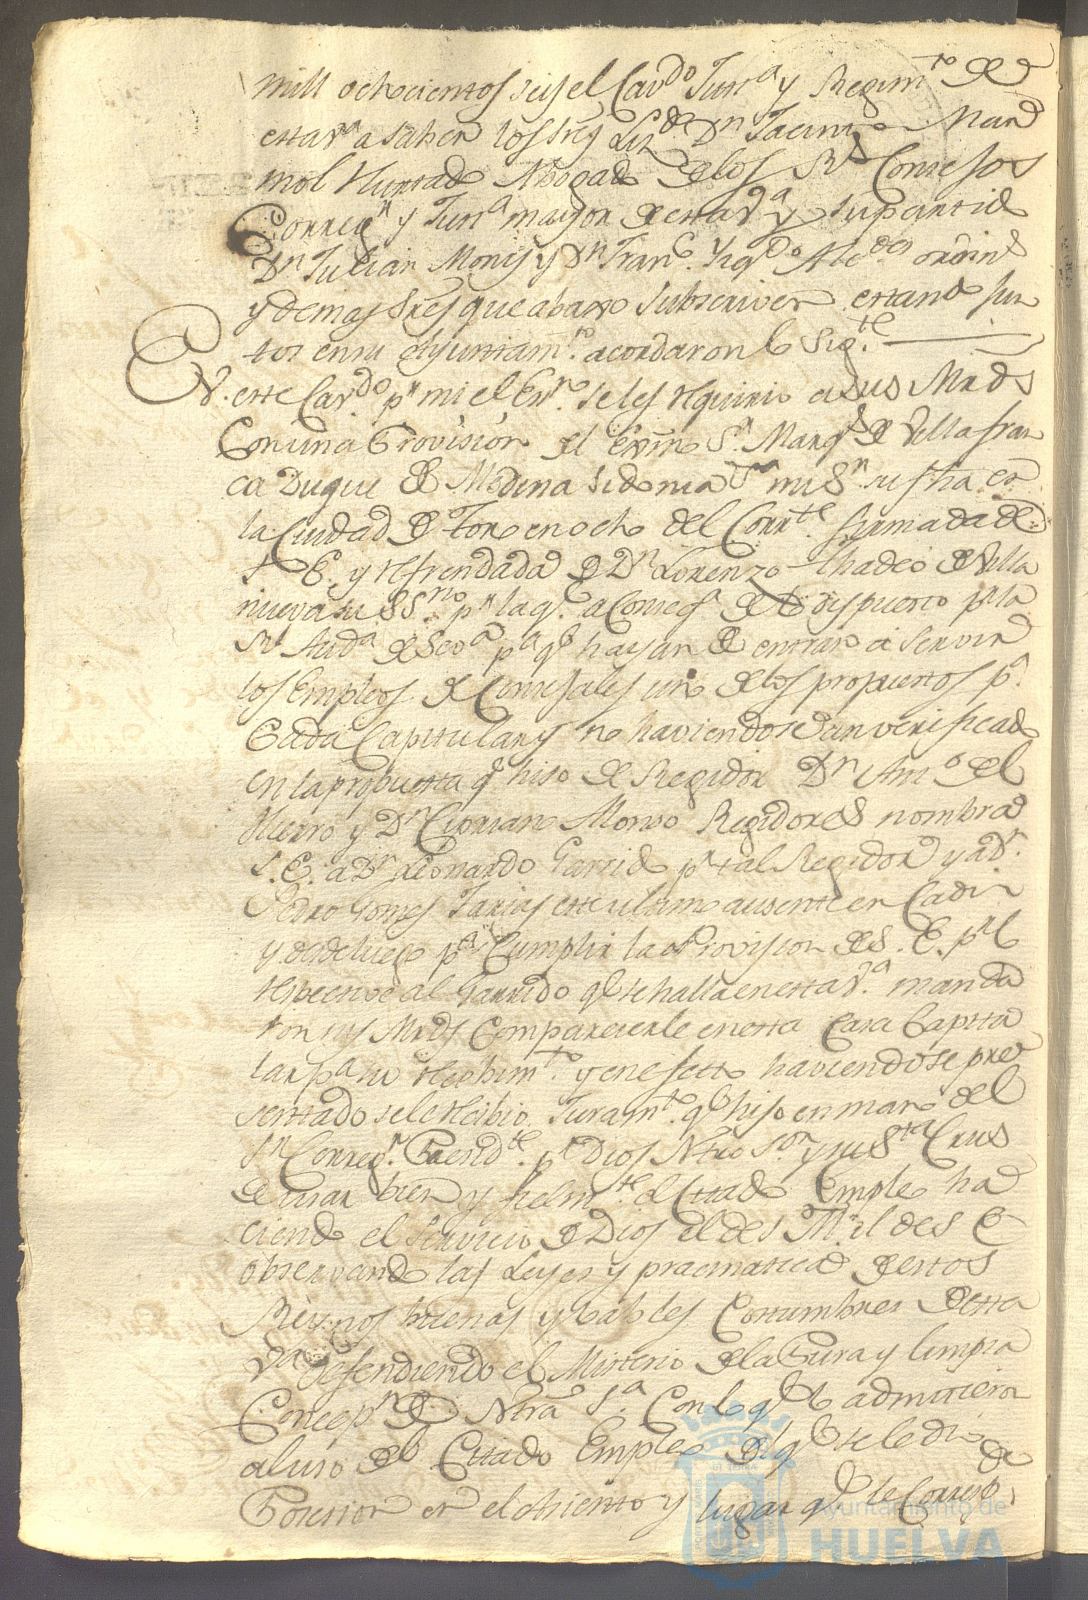 mill ochocientos seis el Cavdo Justa y Regimto de
esta va a saber los Sres Licdo Dn Jacinto Mar
mol Hurtado Abogado de los Rs Consejos
Corregr y Justa mayor de esta va y su partido
Dn Julian Monis y Dn Franco Izqdo Alcdes ordins
y demas Sres que abaxo subscriven estando jun
tos en su Ayuntamto acordaron lo sigte
En este Cavdo pr mi el Esno se les requirio a sus Mrds
con una Provision del Exmo Sr Marqs de Villafran
ca Duque de Medina Sidonia mi Sr su fha en
la Ciudad de Toro en ocho del Corrte firmada de
S. E. y refrendada de Dn Lorenzo Thadeo de Villa
nueva su SSrio pr la qe a Conseqa de lo dispuesto pr la
Rl Auda de Seva pa qe hayan de entrar a servir
los Empleos de Consejales uno de los propuestos pa
Cada Capitular y no haviendose verificado
en la propuesta qe hiso de Regidor Dn Anto del
Hierro y Dn Ciprian Alonso Regidores nombra
S. E. a Dn Leonardo Garrido pr tal Regidor y a Dn
Pedro Gomes Farias este ultimo ausente en Cadiz
y desde luego pa Cumplir la Provision de S. E. pr lo
respective al Garrido qe se halla en esta Va manda
ron sus Mrds Comparecerle en esta Casa Capitu
lar pa su recibimto y en efecto haviendose pre
sentado se le recibio Juramto qe hiso en mano del
Sr Corregr Presidte pr Dios Ntro Sor y su Sta Crus
de usar bien y fielmte el Citado Empleo ha
ciendo el Servicio de Dios el de S. M. el de S. E.
observando las Leyes y pracmaticas de estos
Reynos buenas y loables Costumbres de esta
Va defendiendo el Misterio de la Pura y limpia
Concepn de Ntra Sa Con lo qe lo admitieron
al uso del Citado Empleo del qe se le dio
Posesion en el Asiento y lugar qe le Corresp
Ayuntamiento de
HUELVA